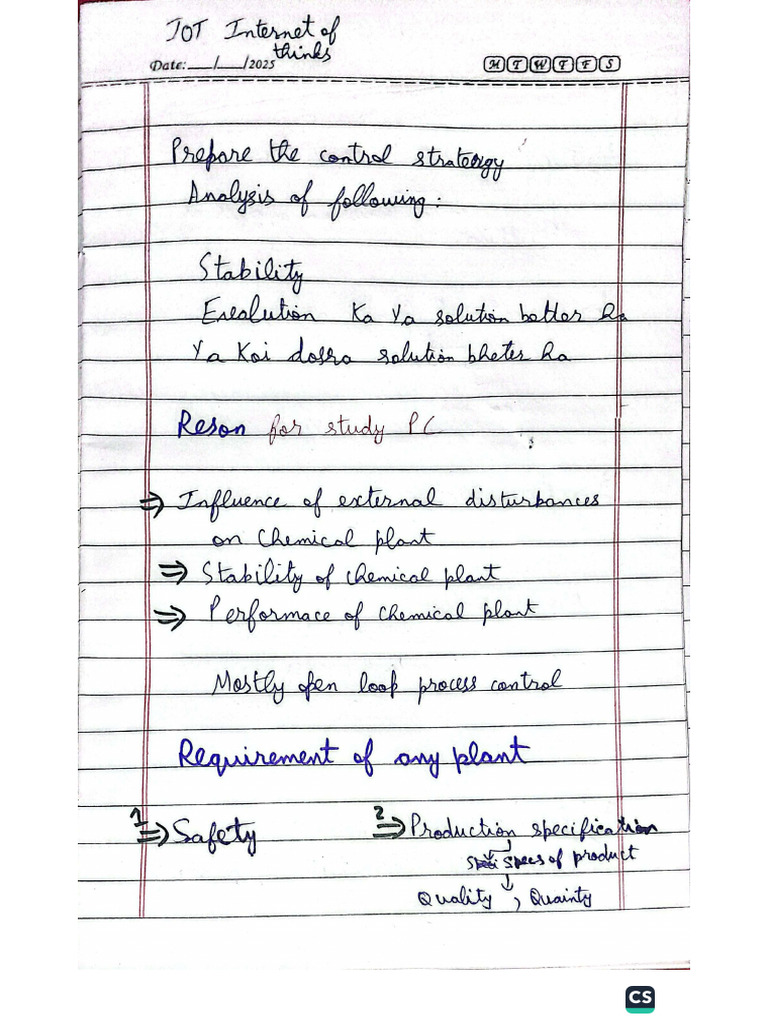 IOT Internet of
thinks
Date:___/___/2025 M T W T F S
Prepare the control strategy
Analysis of following:
Stability
Evealution Ka Ya solution better ha
Ya Koi dosra solution bheter ha
Reson for study PC
⇒ Influence of external disturbances
on Chemical plant
⇒ Stability of chemical plant
⇒ Performace of chemical plant
Mostly open loop process control
Requirement of any plant
1 ⇒ Safety 2 ⇒ Production specification
specs of product
Quality , Quainty
CS